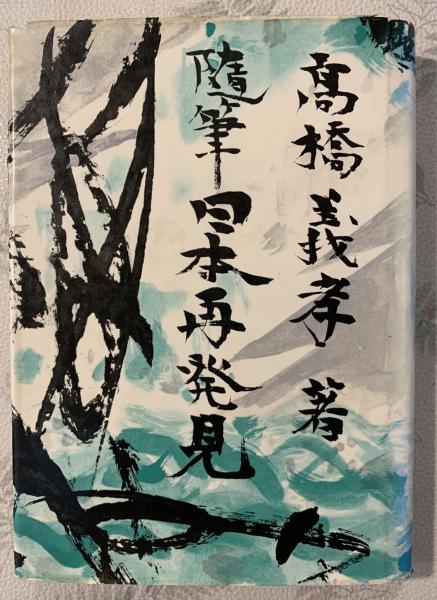 高橋義孝 著
隨筆 日本再発見